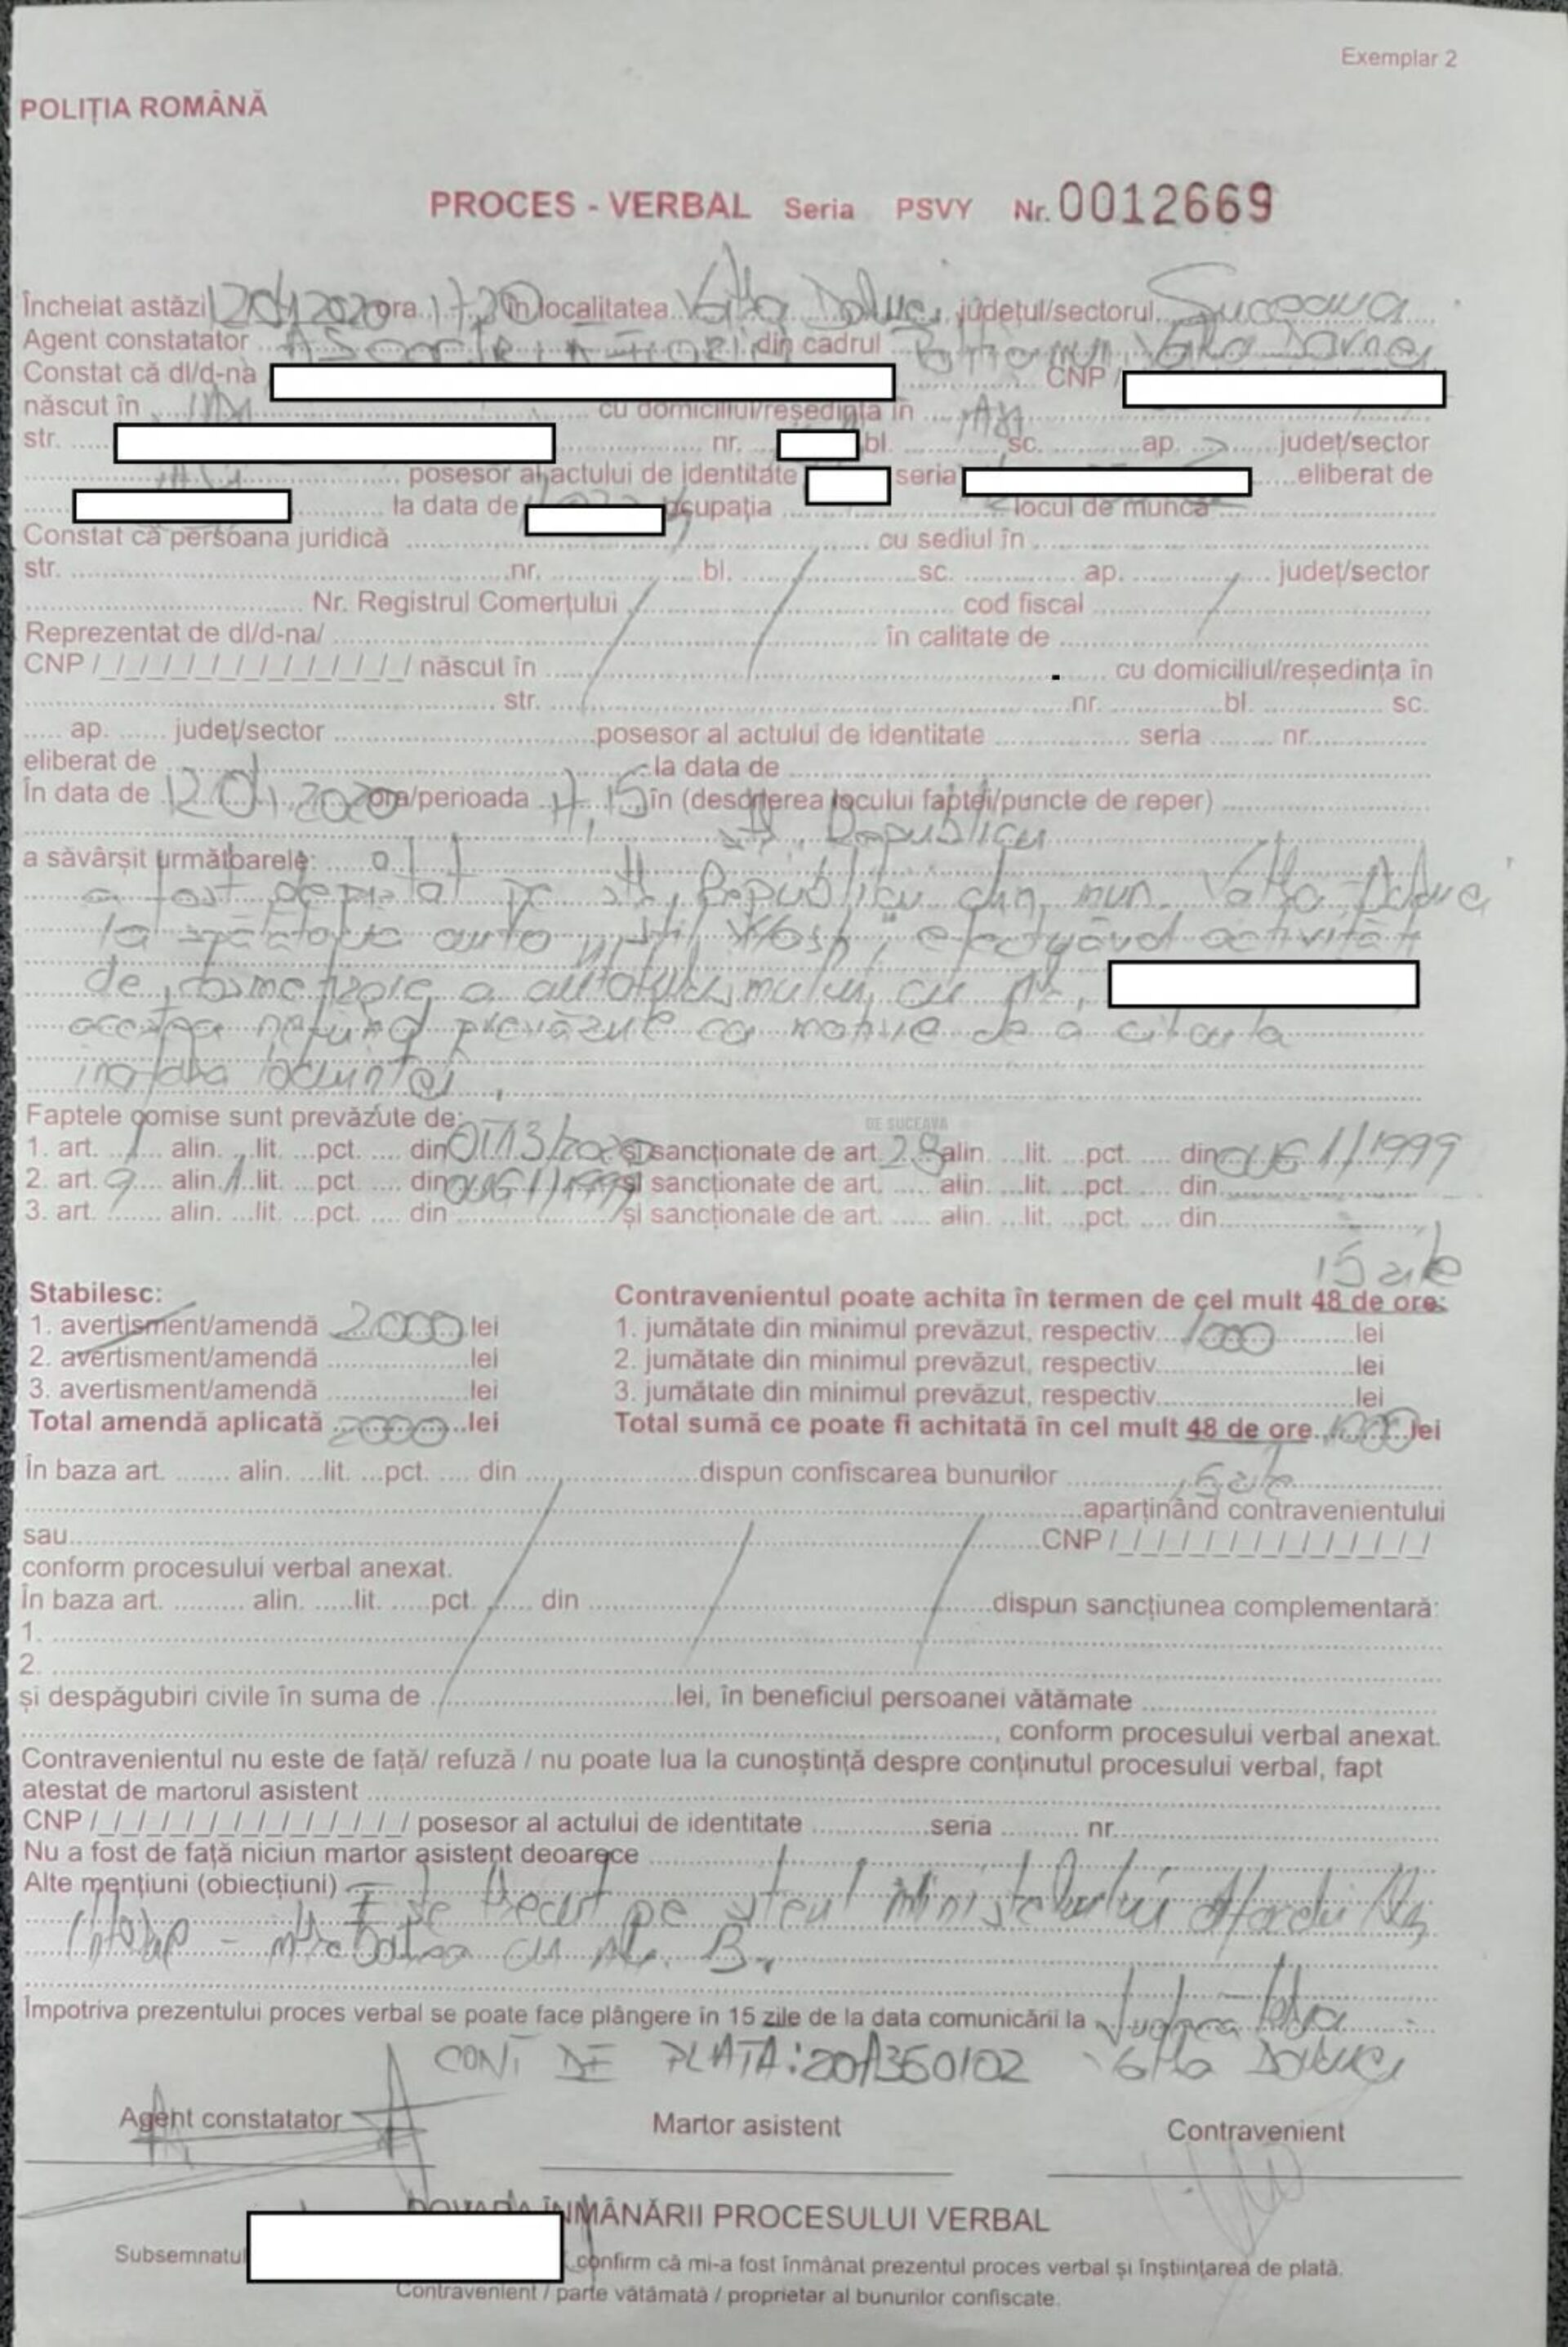 Exemplar 2
POLIȚIA ROMÂNĂ
PROCES - VERBAL Seria PSVY Nr. 0012669
Încheiat astăzi 12.04.2020 ora 17:30 în localitatea Vatra Dornei, județul/sectorul Suceava
Agent constatator din cadrul Poliția mun. Vatra Dornei
Constat că dl/d-na CNP /
născut în cu domiciliul/reședința în
str. nr. bl. sc. ap. județ/sector
posesor al actului de identitate seria eliberat de
la data de ocupația locul de muncă
Constat că persoana juridică cu sediul în
str. nr. bl. sc. ap. județ/sector
Nr. Registrul Comerțului cod fiscal
Reprezentat de dl/d-na/ în calitate de
CNP /_/_/_/_/_/_/_/_/_/_/_/_/_/ născut în cu domiciliul/reședința în
str. nr. bl. sc.
ap. județ/sector posesor al actului de identitate seria nr.
eliberat de la data de
În data de 12.04.2020 ora/perioada 17,15 în (descrierea locului faptei/puncte de reper)
str. Republicii
a săvârșit următoarele:
a fost depistat pe str. Republicii din mun. Vatra Dornei
la spălătoria auto Wash, efectuând activități
de cosmetizare a autoturismului cu nr.
acestea nefiind prevăzute ca motive de a circula
în afara locuinței.
Faptele comise sunt prevăzute de: DE SUCEAVA
1. art. 1 alin. lit. pct. din OM 3/2020 și sancționate de art. 28 alin. lit. pct. din OUG 1/1999
2. art. 9 alin. 1 lit. pct. din OUG 1/1999 și sancționate de art. alin. lit. pct. din
3. art. alin. lit. pct. din și sancționate de art. alin. lit. pct. din
15 zile
Stabilesc: Contravenientul poate achita în termen de cel mult 48 de ore:
1. avertisment/amendă 2000 lei 1. jumătate din minimul prevăzut, respectiv 1000 lei
2. avertisment/amendă lei 2. jumătate din minimul prevăzut, respectiv lei
3. avertisment/amendă lei 3. jumătate din minimul prevăzut, respectiv lei
Total amendă aplicată 2000 lei Total sumă ce poate fi achitată în cel mult 48 de ore 1000 lei
În baza art. alin. lit. pct. din dispun confiscarea bunurilor
aparținând contravenientului
sau CNP /_/_/_/_/_/_/_/_/_/_/_/_/_/
conform procesului verbal anexat.
În baza art. alin. lit. pct. din dispun sancțiunea complementară:
1.
2.
și despăgubiri civile în suma de lei, în beneficiul persoanei vătămate
, conform procesului verbal anexat.
Contravenientul nu este de față/ refuză / nu poate lua la cunoștință despre conținutul procesului verbal, fapt
atestat de martorul asistent
CNP /_/_/_/_/_/_/_/_/_/_/_/_/_/ posesor al actului de identitate seria nr.
Nu a fost de față niciun martor asistent deoarece
Alte mențiuni (obiecțiuni) trecut pe siteul Ministerului Afacerilor
Interne - întrebarea cu nr. 13.
Împotriva prezentului proces verbal se poate face plângere în 15 zile de la data comunicării la Judecătoria
CONT DE PLATA: 20A350102 Vatra Dornei
Agent constatator Martor asistent Contravenient
DOVADA ÎNMÂNĂRII PROCESULUI VERBAL
Subsemnatul confirm că mi-a fost înmânat prezentul proces verbal și înștiințarea de plată.
Contravenient / parte vătămată / proprietar al bunurilor confiscate.